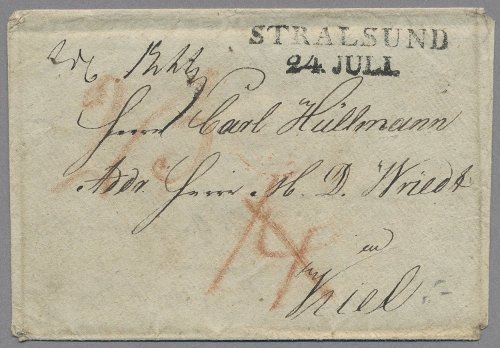 STRALSUND
24 JULI
Herrn Carl Hüllmann
Addr. Herrn M. D. Wriedt
in
Kiel